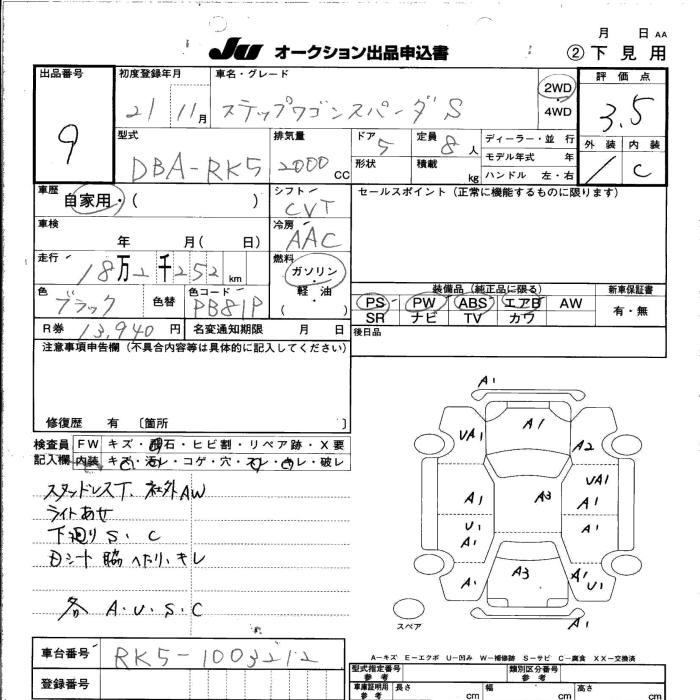 月 日 AA
JU オークション出品申込書 ②下見用
出品番号 初度登録年月 車名・グレード 評価点
9 21 11月 ステップワゴンスパーダS 2WD 4WD 3.5
型式 排気量 ドア 5 定員 8人 ディーラー・並行 外装 内装
DBA-RK5 2000CC 形状 積載 kg モデル年式 年 C
ハンドル 左・右
車歴 自家用・( ) シフト CVT セールスポイント(正常に機能するものに限ります)
車検 年 月( 日) 冷房 AAC
走行 18万2千252km 燃料 ガソリン・軽・油 ( )
色 ブラック 色替 色コード PB81P
装備品(純正品に限る) 新車保証書
PS PW ABS エアB AW 有・無
SR ナビ TV カワ
R券 13,940円 名変通知期限 月 日 後日品
注意事項申告欄(不具合内容等は具体的に記入してください)
修復歴 有 〔箇所 〕
検査員 FW キズ・飛石・ヒビ割・リペア跡・X要
記入欄 内装 キズ・汚レ・コゲ・穴・スレ・キレ・破レ
スタッドレスT. 社外AW
ライトあせ
下廻りS、C
Dシート 脇 へたり、キレ
各 A・U・S・C
A1
A1
UA1 A2
UA1
A1 A3 A1
U1 A1 A1
A1 A3 A1 U1
A1
スペア
A-キズ E-エクボ U-凹み W-補修跡 S-サビ C-腐食 XX-交換済
車台番号 RK5-1003212
型式指定番号 参考 類別区分番号 参考
登録番号 車庫証明用 参考 長さ cm 幅 cm 高さ cm